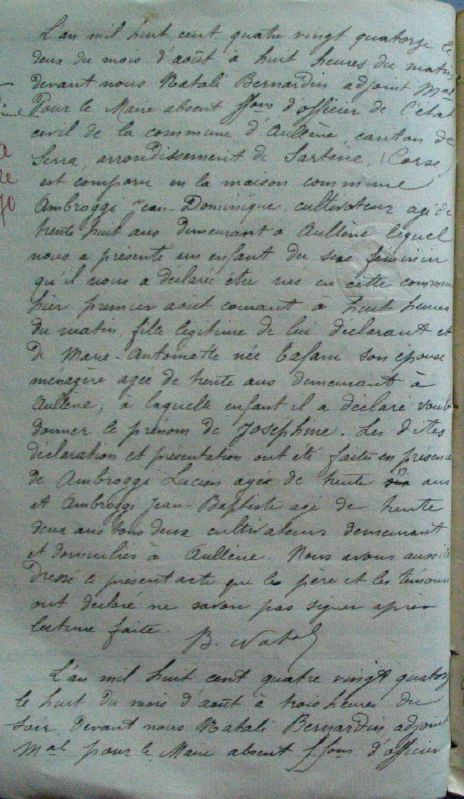 L'an mil huit cent quatre vingt quatorze le
deux du mois d'août à huit heures du matin
devant nous Natali Bernardin adjoint Mal
Pour le Maire absent ffons d'officier de l'état
civil de la commune d'Aullène canton de
Serra, arrondissement de Sartène, (Corse)
est comparu en la maison commune
Ambroggi Jean-Dominique, cultivateur agé de
trente huit ans demeurant à Aullène lequel
nous a présenté un enfant du sexe féminin
qu'il nous a déclaré être né en cette commune
hier premier aout courant à huit heures
du matin fille légitime de lui déclarant et
de Marie-Antoinette née son épouse
ménagère agée de trente ans demeurant à
Aullène, à laquelle enfant il a déclaré vouloir
donner le prénom de Josephine. Les dites
déclaration et présentation ont été faites en présence
de Ambroggi Lucien agée de trente ans
et Ambroggi Jean-Baptiste agé de trente
deux ans tous deux cultivateurs demeurant
et domiciliés à Aullène. Nous avons aussi
Dressé le présent acte que le père et les témoins
ont déclaré ne savoir pas signer apres
lecture faite. B. Natali
L'an mil huit cent quatre vingt quatorze
le huit du mois d'août à trois heures du
soir Devant nous Natali Bernardin adjoint
Mal pour le Maire absent ffons d'officier